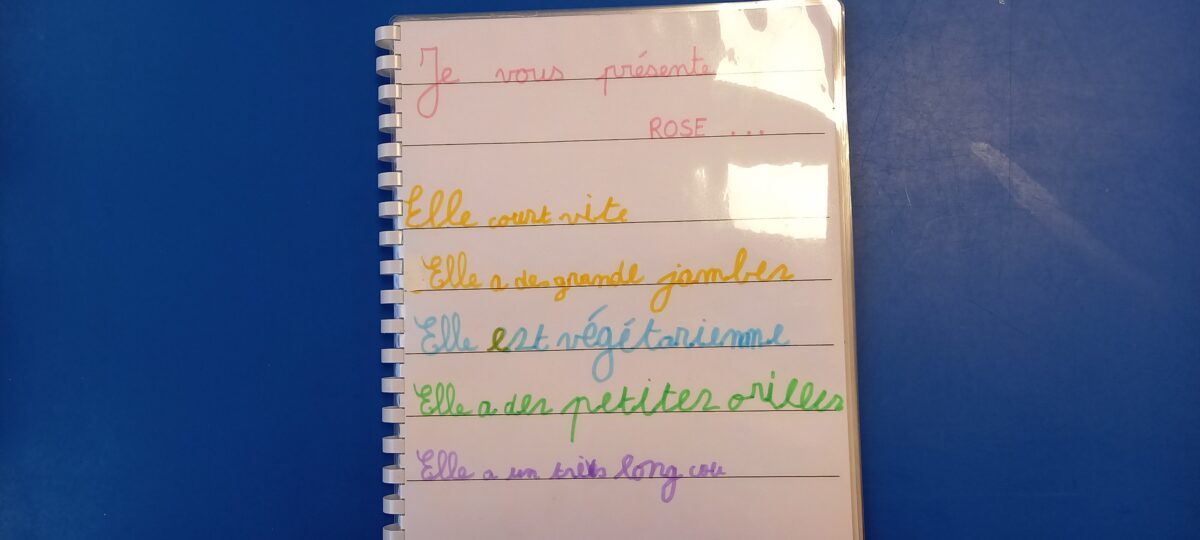 Je vous présente
ROSE ...
Elle court vite
Elle a des grande jambes
Elle est végétarienne
Elle a des petites orilles
Elle a un très long cou